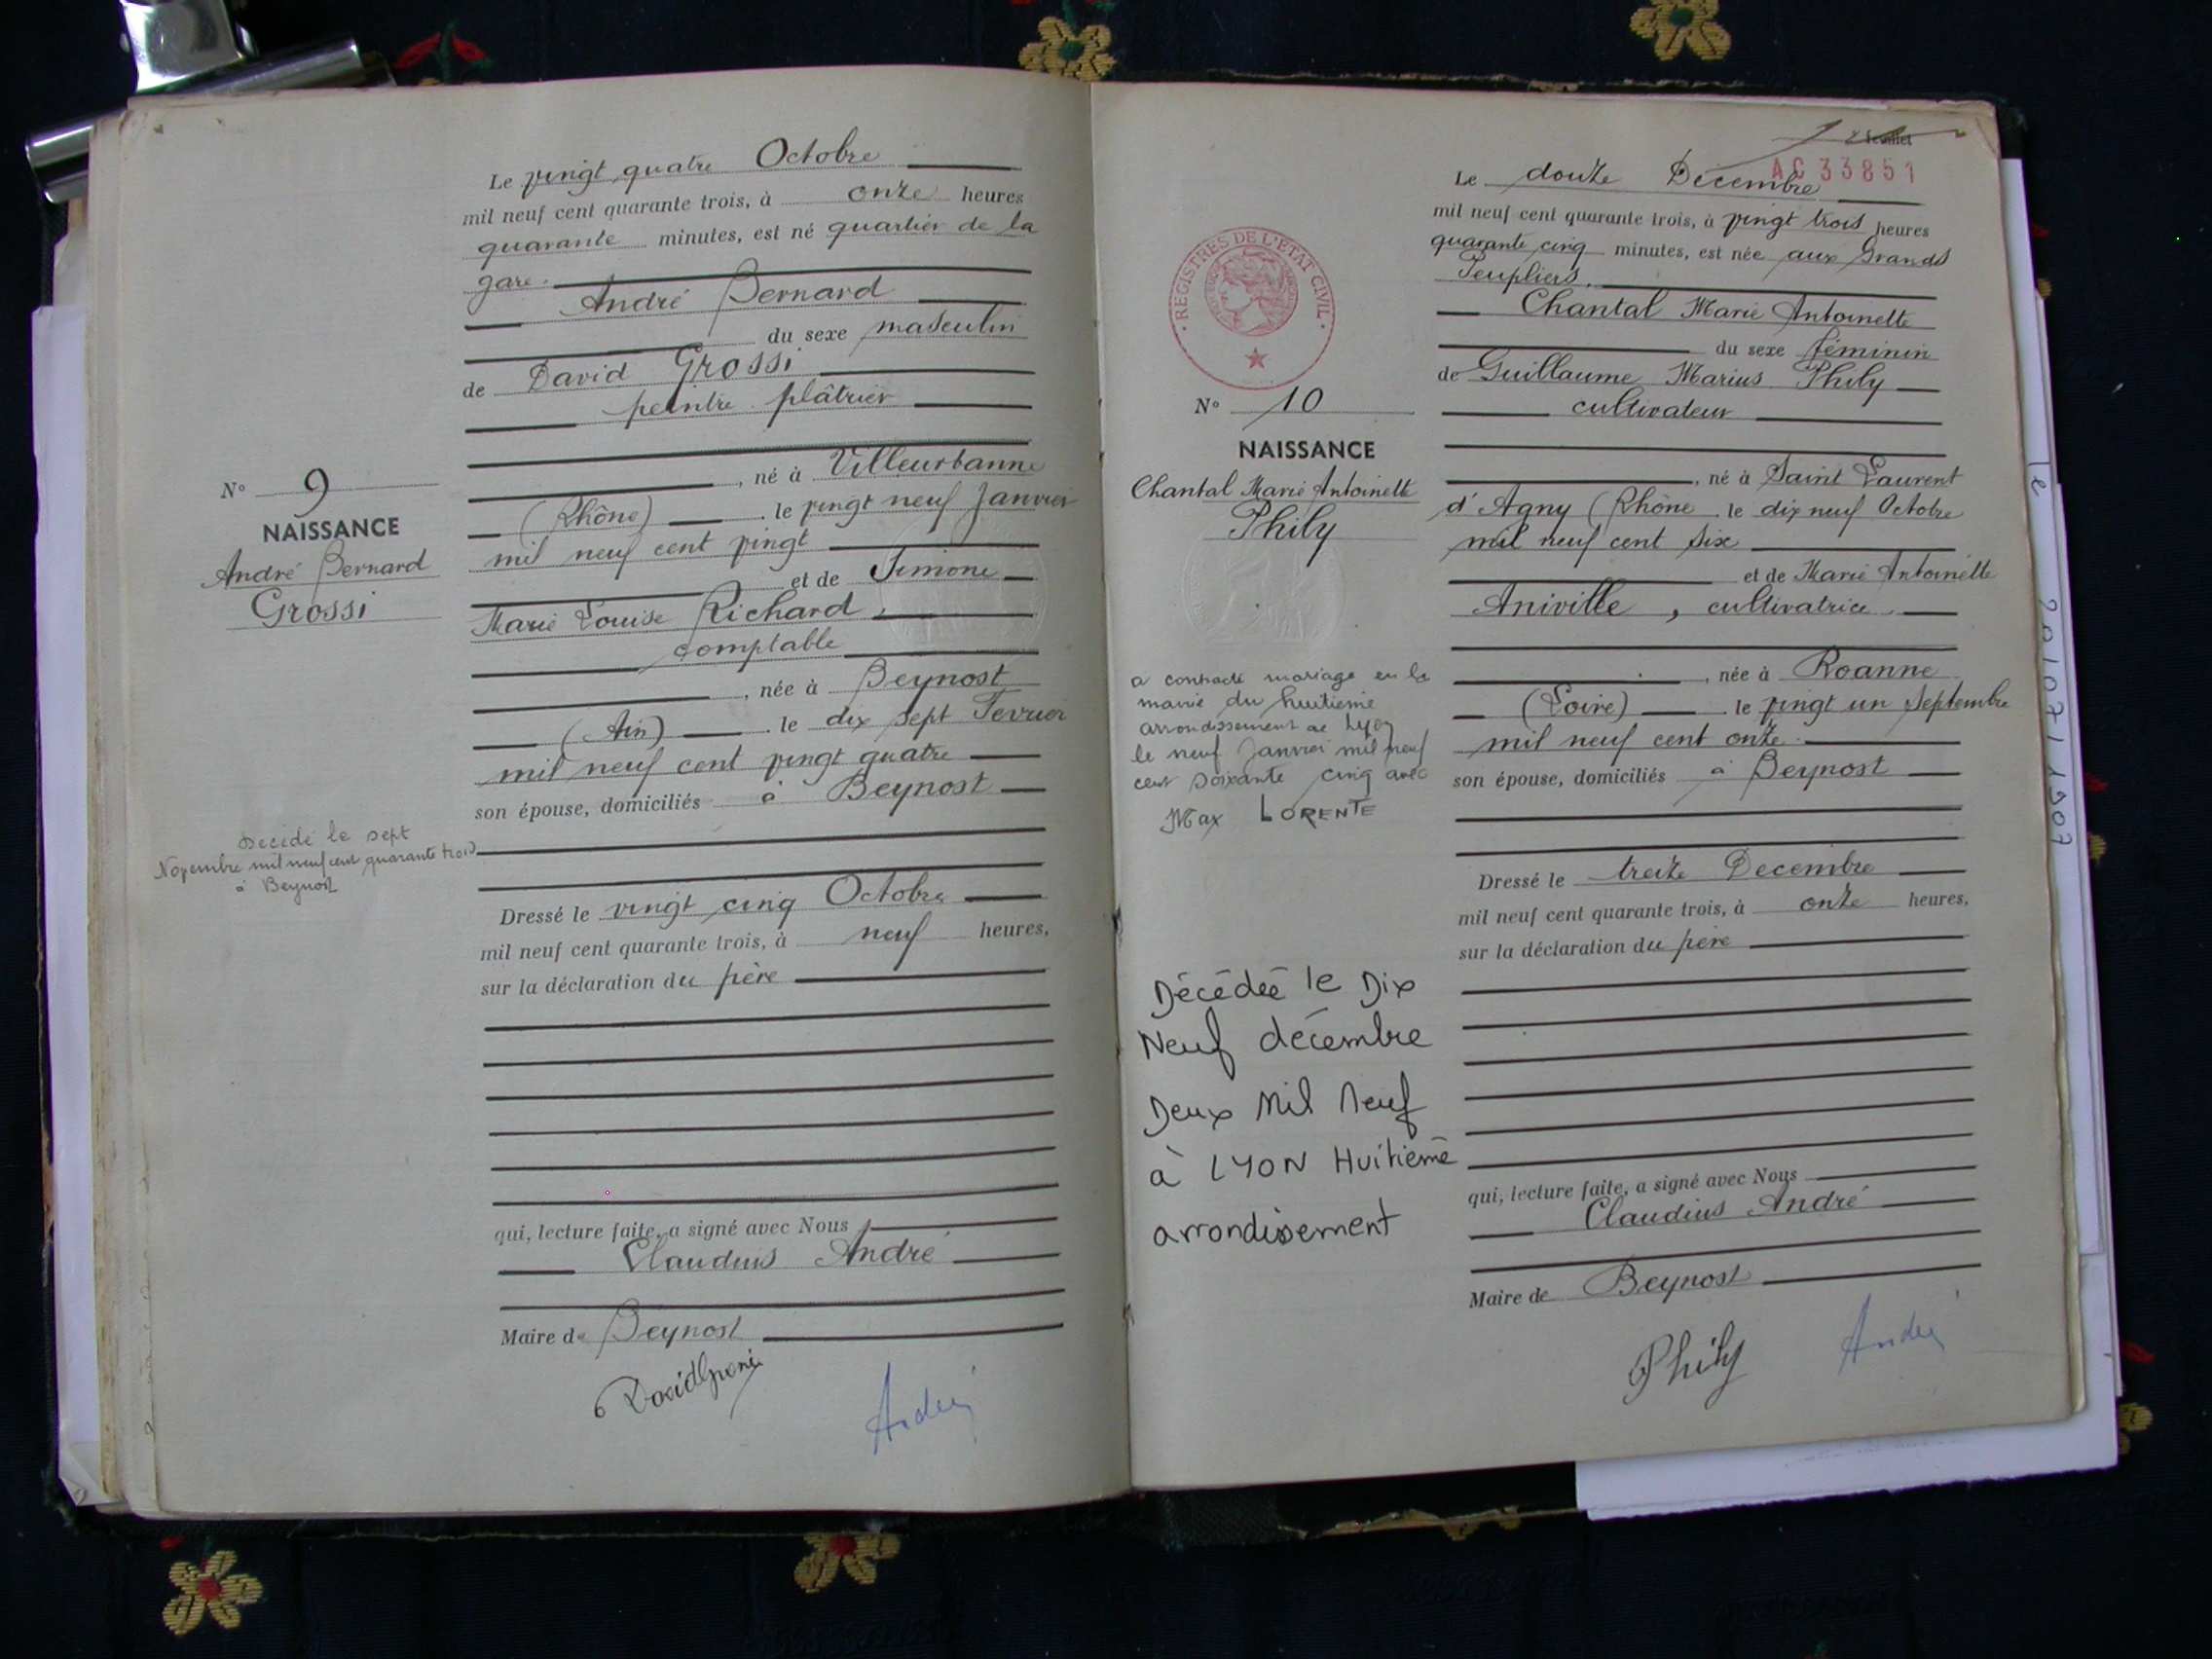 Le vingt quatre Octobre
mil neuf cent quarante trois, à onze heures
quarante minutes, est né quartier de la
gare.
André Bernard
du sexe masculin
de David Grossi
peintre plâtrier
, né à Villeurbanne
(Rhône) le vingt neuf Janvier
mil neuf cent vingt
et de Simone
Marie Louise Richard,
comptable
, née à Beynost
(Ain) le dix sept Fevrier
mil neuf cent vingt quatre
son épouse, domiciliés à Beynost
Dressé le vingt cinq Octobre
mil neuf cent quarante trois, à neuf heures,
sur la déclaration du père
qui, lecture faite, a signé avec Nous
Claudius André
Maire de Beynost
André
N° 9
NAISSANCE
André Bernard
Grossi
Décédé le sept
Novembre mil neuf cent quarante trois
à Beynost
feuillet
AC 33851
Le douze Décembre
mil neuf cent quarante trois, à vingt trois heures
quarante cinq minutes, est née aux Grands
Peupliers.
Chantal Marie Antoinette
du sexe féminin
de Guillaume Marius Phily
cultivateur
, né à Saint Laurent
d'Agny (Rhône le dix neuf Octobre
mil neuf cent six
et de Marie Antoinette
Aniville, cultivatrice
, née à Roanne
(Loire) le vingt un Septembre
mil neuf cent onze.
son épouse, domiciliés à Beynost
Dressé le treize Decembre
mil neuf cent quarante trois, à onze heures,
sur la déclaration du père
qui, lecture faite, a signé avec Nous
Claudius André
Maire de Beynost
Phily André
REGISTRES DE L'ETAT CIVIL
N° 10
NAISSANCE
Chantal Marie Antoinette
Phily
a contracté mariage en la
mairie du huitième
arrondissement de Lyon
le neuf Janvier mil neuf
cent soixante cinq avec
Max LORENTE
Décédée le Dix
Neuf décembre
Deux Mil Neuf
à LYON Huitième
arrondissement